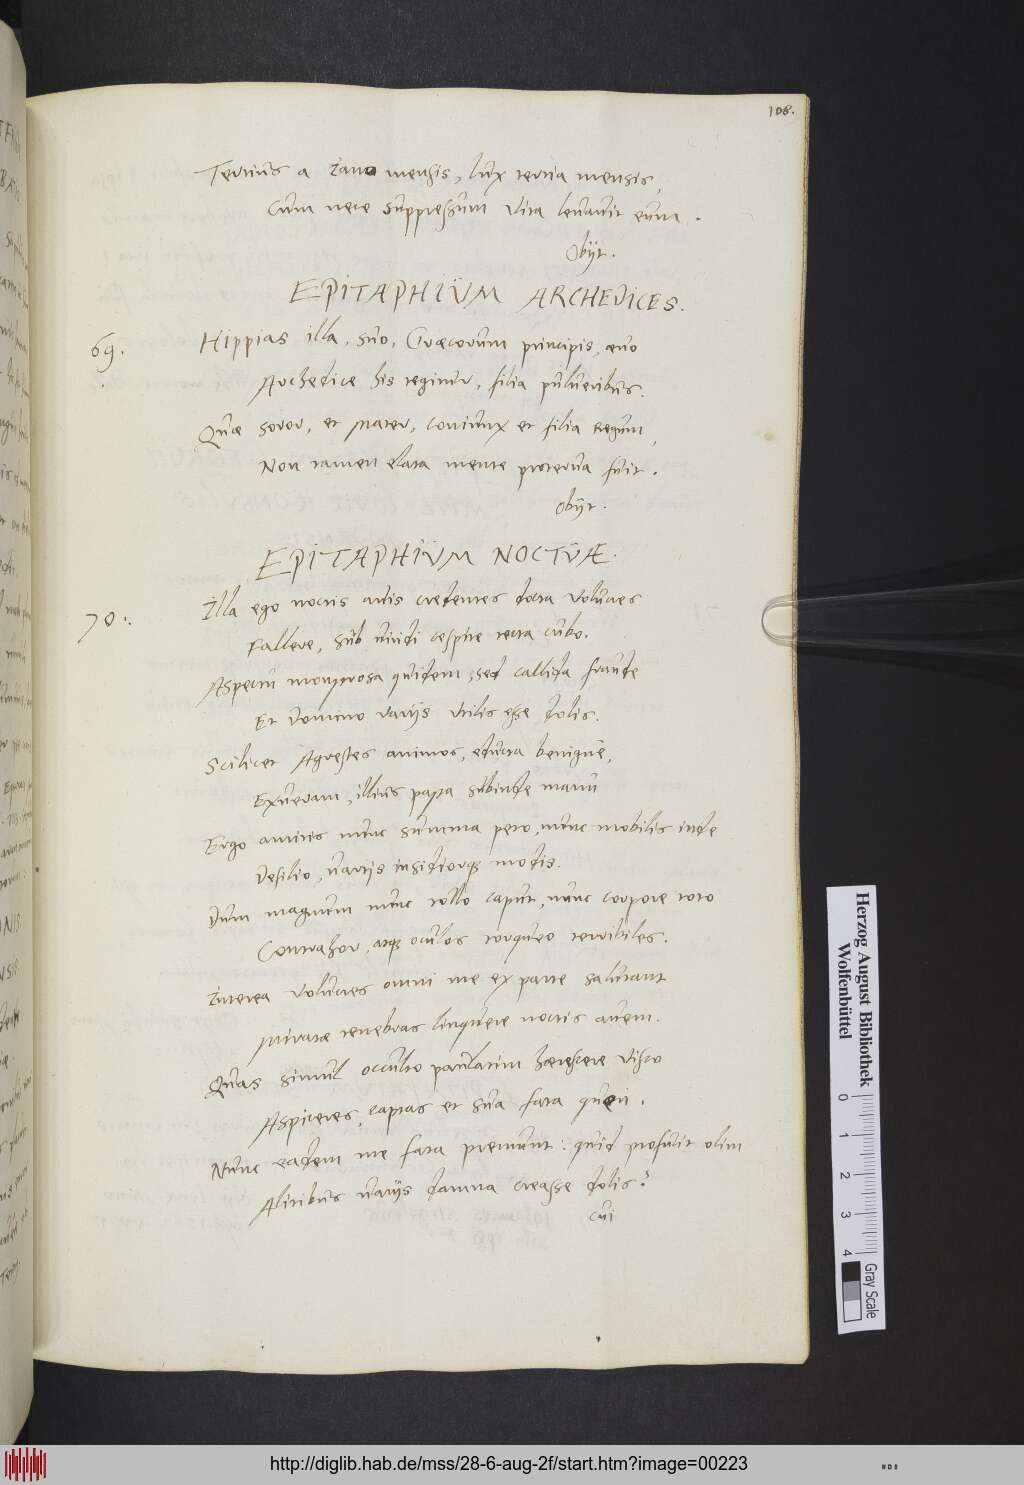 108.
Tertius a Iano mensis, lux tertia mensis,
Cum nece suppressum vita levavit eum.
Obijt.
EPITAPHIUM ARCHEDICES.
69.
Hippias illa, suo, Græcorum principis, ævo
Archedice his tegitur, filia pulveribus.
Quæ soror, et mater, coniunx et filia regum,
Non tamen elata mente proterva fuit.
Obijt.
EPITAPHIUM NOCTUÆ.
70.
Illa ego noctis avis credentes docta volucres
Fallere, sub viridi cespite tecta cubo.
Aspectu monstrosa quidem, sed callida fraude
Et Domino varijs utilis esse dolis.
Scilicet Agrestes animos, educta benignè,
Exueram, illius pasta subinde manu
Ergo amites nunc summa peto, nunc mobilis inde
Desilio, varijs insidiorq; modis.
Dum magnum nunc tollo caput, nunc corpore toto
Contrahor, atq; oculos torqueo terribiles.
Interea volucres omni me ex parte salutant
Miratæ tenebras linquere noctis avem.
Quas simul occulto paulatim hærescere visco
Aspiceres, captas et sua fata queri.
Nunc eadem me fata premunt: quid profuit olim
Alitibus varijs damna creasse dolis?
cui
Herzog August Bibliothek
Wolfenbüttel
0 1 2 3 4
Gray Scale
http://diglib.hab.de/mss/28-6-aug-2f/start.htm?image=00223